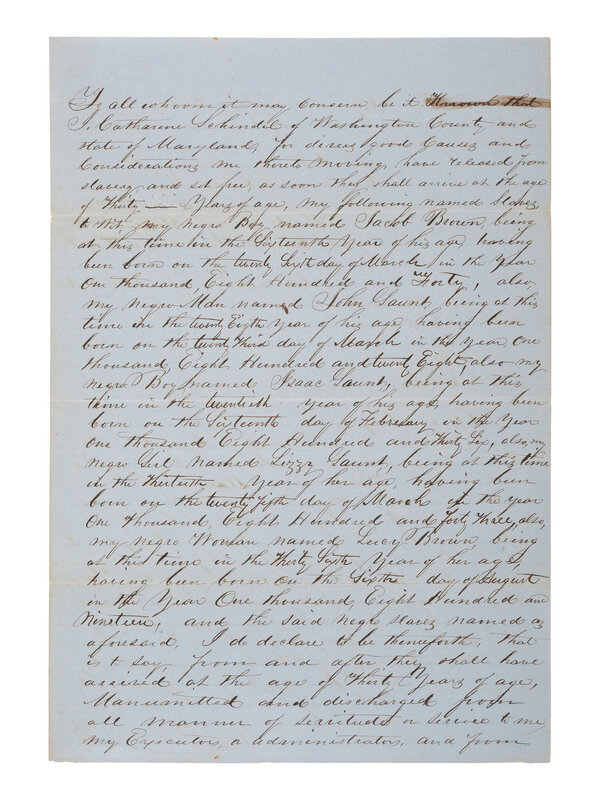 To all whom it may Concern be it Known that
I. Catharine Schindel of Washington County and
state of Maryland, for divers good Causes and
Considerations me thereto moving, have released from
slavery and set free, as soon they shall arrive at the age
of Thirty — Years of age, my following named Slaves,
to Wit, my negro Boy named Jacob Brown being
at this time in the Sixteenth Year of his age having
been born on the twenty Sixth day of March in the Year
One thousand, Eight Hundred and Forty, also
my Negro Man named John Gaunt being at this
time in the twenty Eigth Year of his age, having been
born on the twenty third day of March in the Year One
thousand Eight Hundred and twenty Eight, also my
negro Boy named Isaac Gaunt, being at this
time in the twentieth Year of his age, having been
born on the Sixteenth day of February in the Year
One thousand Eight Hundred and Thirty Six, also, my
negro Girl named Lizzy Gaunt, being at this time
in the thirteenth Year of her age, having been
born on the twenty fifth day of March in the Year
One thousand, Eight Hundred and forty three, also,
my negro Woman named Lucy Brown, being
at this time in the Thirty Sixth Year of her age,
having been born on the Sixth day of August
in the Year One thousand, Eight Hundred and
Nineteen, and the said negro slaves named as
aforesaid. I do declare to be thenceforth, that
is to say from and after they shall have
arrived at the age of Thirty Years of age,
Manumitted and discharged from
all manner of servitude or service to me
my Executors, or administrators, and from